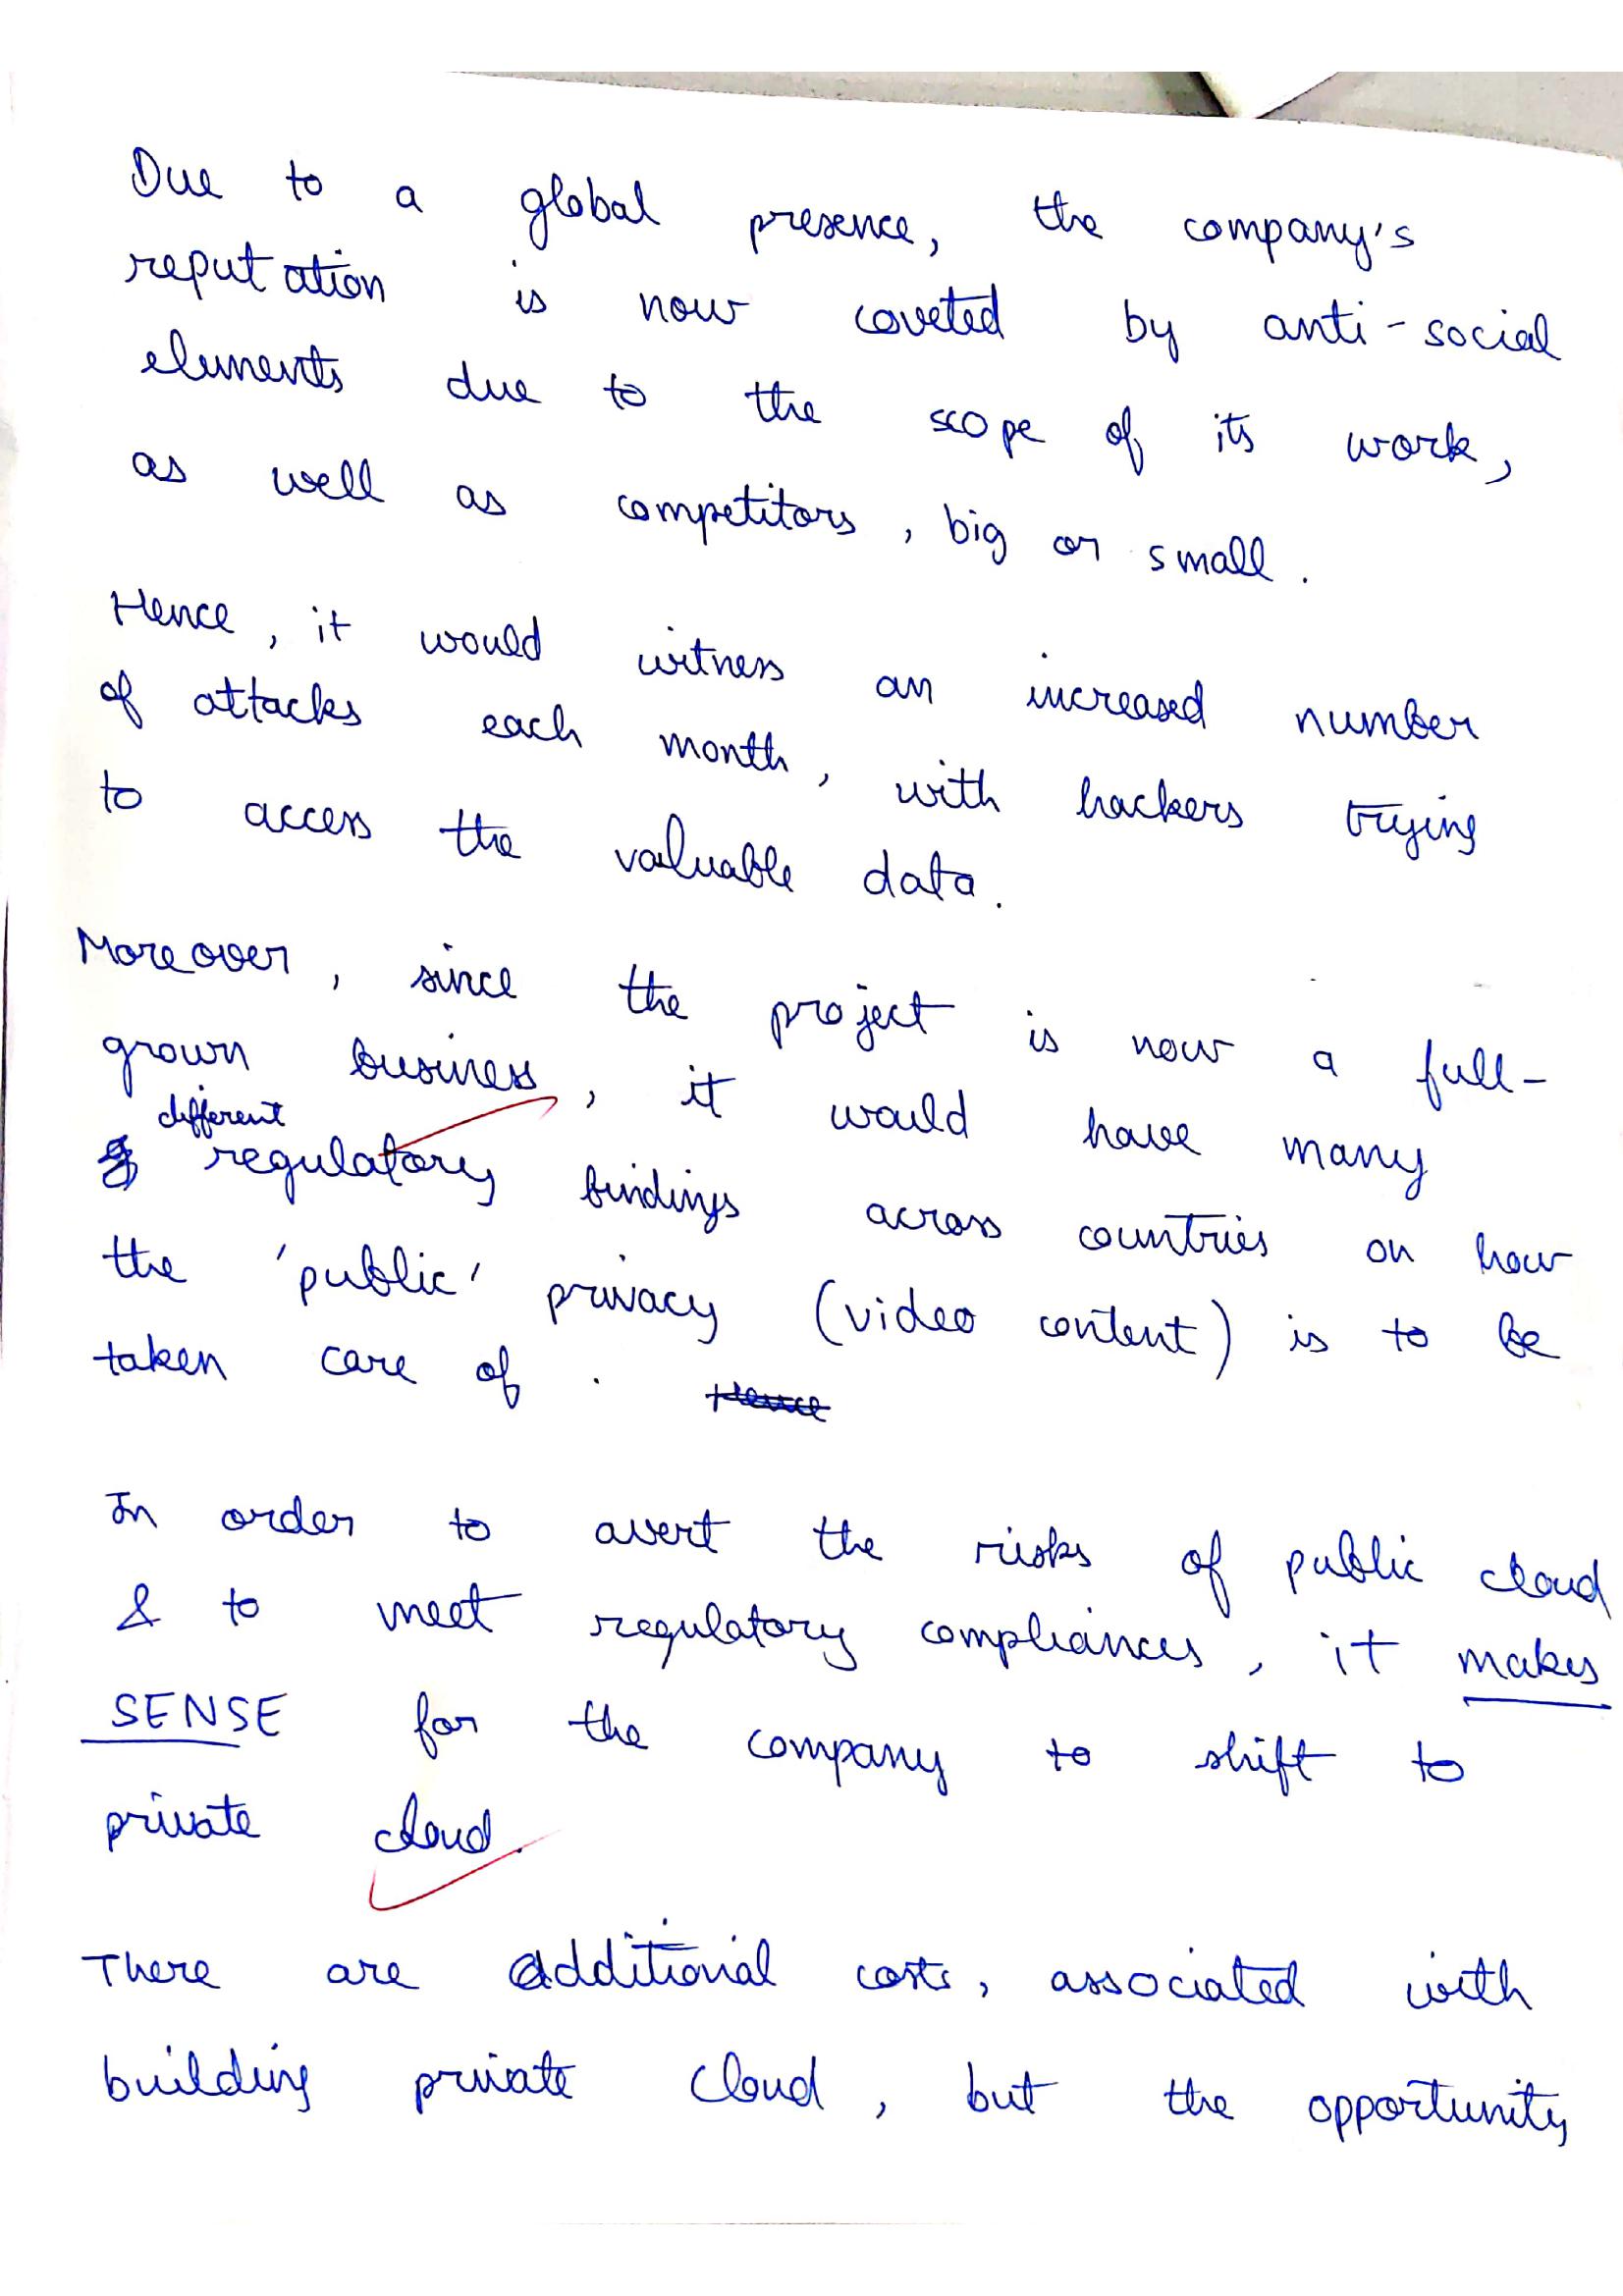 Due to a global presence, the company's
reputation is now coveted by anti-social
elements due to the scope of its work,
as well as competitors, big or small.
Hence, it would witness an increased number
of attacks each month, with hackers trying
to access the valuable data.
Moreover, since the project is now a full-
grown business, it would have many
different
regulatory bindings across countries on how
the 'public' privacy (video content) is to be
taken care of. Hence
In order to avert the risks of public cloud
& to meet regulatory compliances, it makes
SENSE for the company to shift to
private cloud.
There are additional costs, associated with
building private cloud, but the opportunity